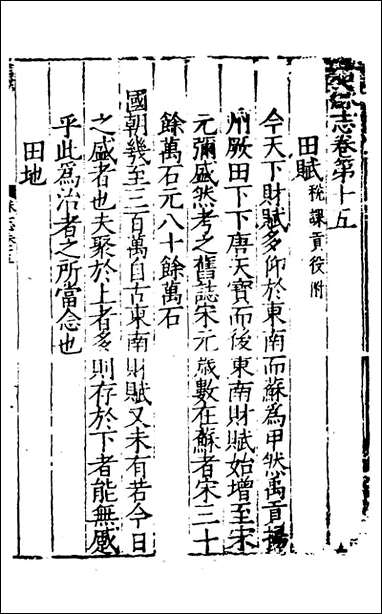 姑蘇志卷第十五
田賦 稅課貢役附
今天下財賦多仰於東南而蘇爲甲然禹貢揚
州厥田下下唐天寶而後東南財賦始增至宋
元彌盛然考之舊誌宋元歲數在蘇者宋三十
餘萬石元八十餘萬石
國朝幾至三百萬自古東南財賦又未有若今日
之盛者也夫聚於上者多則存於下者能無感
乎此爲治者之所當念也
田地